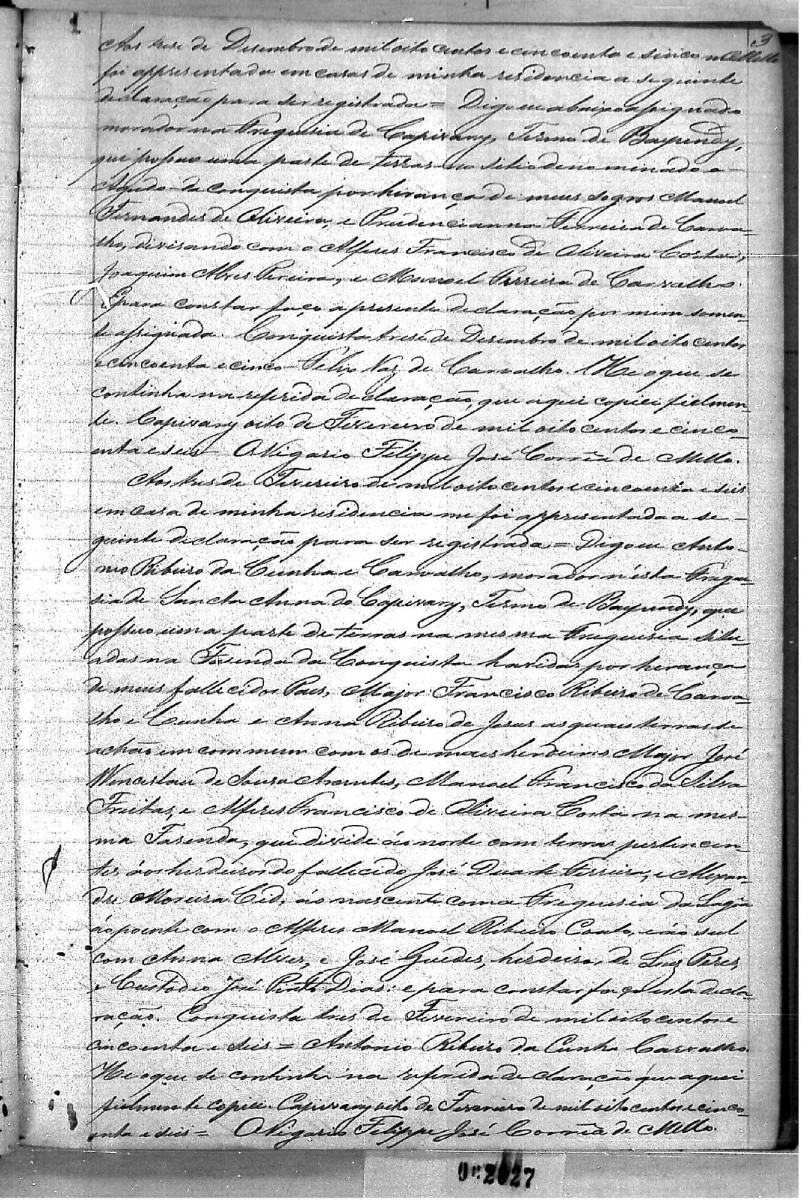 3
Aos trese de Desembro de mil oito centos e cincoenta e sinco
foi appresentada em casas de minha residencia a seguinte
declaração para ser registrada = Digo eu abaixo assignado
morador na Freguesia de Capivary, Termo de Baependy,
que possuo uma parte de terras no sitio denominado
da conquista por herança de meus sogros Manoel
Fernandes de Oliveira, e Prudencianna Ferreira de Carva-
lho, divisando com o Alferes Francisco de Oliveira Costa,
Joaquim Alves Pereira, e Manoel Ferreira de Carvalho.
E para constar faço a presente declaração por mim somen-
te assignada. Conquista trese de Desembro de mil oito centos
e cincoenta e cinco Felix Vaz de Carvalho. He o que se
continha na referida declaração, que aqui copiei fielmen-
te. Capivary oito de Fevereiro de mil oito centos e cinco-
enta e seis O Vigario Filippe José Corrêa de Mello.
Aos tres de Fevereiro de mil oito centos e cincoenta e seis
em casa de minha residencia me foi appresentada a se-
guinte declaração para ser registrada = Digo eu Anto-
nio Ribeiro da Cunha e Carvalho, morador n'esta Fregue-
sia de Sancta Anna do Capivary, Termo de Baependy, que
possuo uma parte de terras na mesma Freguesia situ-
adas na Fasenda da Conquista havidas por herança
de meus fallecidos Pais, Major Francisco Ribeiro de Carva-
lho e Cunha e Anna Ribeiro de Jesus as quais terras se
achão em commum com os de mais herdeiros Major José
Wenceslau de Sousa Arantes, Manoel Francisco da Silva
Freitas, e Alferes Francisco de Oliveira Costa na mes-
ma Fasenda, que divide ao norte com terras pertencen-
tes áos herdeiros do fallecido José Duarte Ferreira, e Alexan-
dre Moreira Cid, áo nascente com a Freguesia da
áo poente com o Alferes Manoel Ribeiro Couto, e áo sul
com Anna Alves, e José Guedes, herdeiros de Luiz Peres,
e Custodio José Pinto Dias: e para constar faço esta decla-
ração. Conquista tres de Fevereiro de mil oito centos e
cincoenta e seis = Antonio Ribeiro da Cunha Carvalho.
He o que se continha na referida declaração que aqui
fielmente copiei Capivary oito de Fevereiro de mil oito centos e cinco-
enta e seis = O Vigario Filippe José Corrêa de Mello.
2027